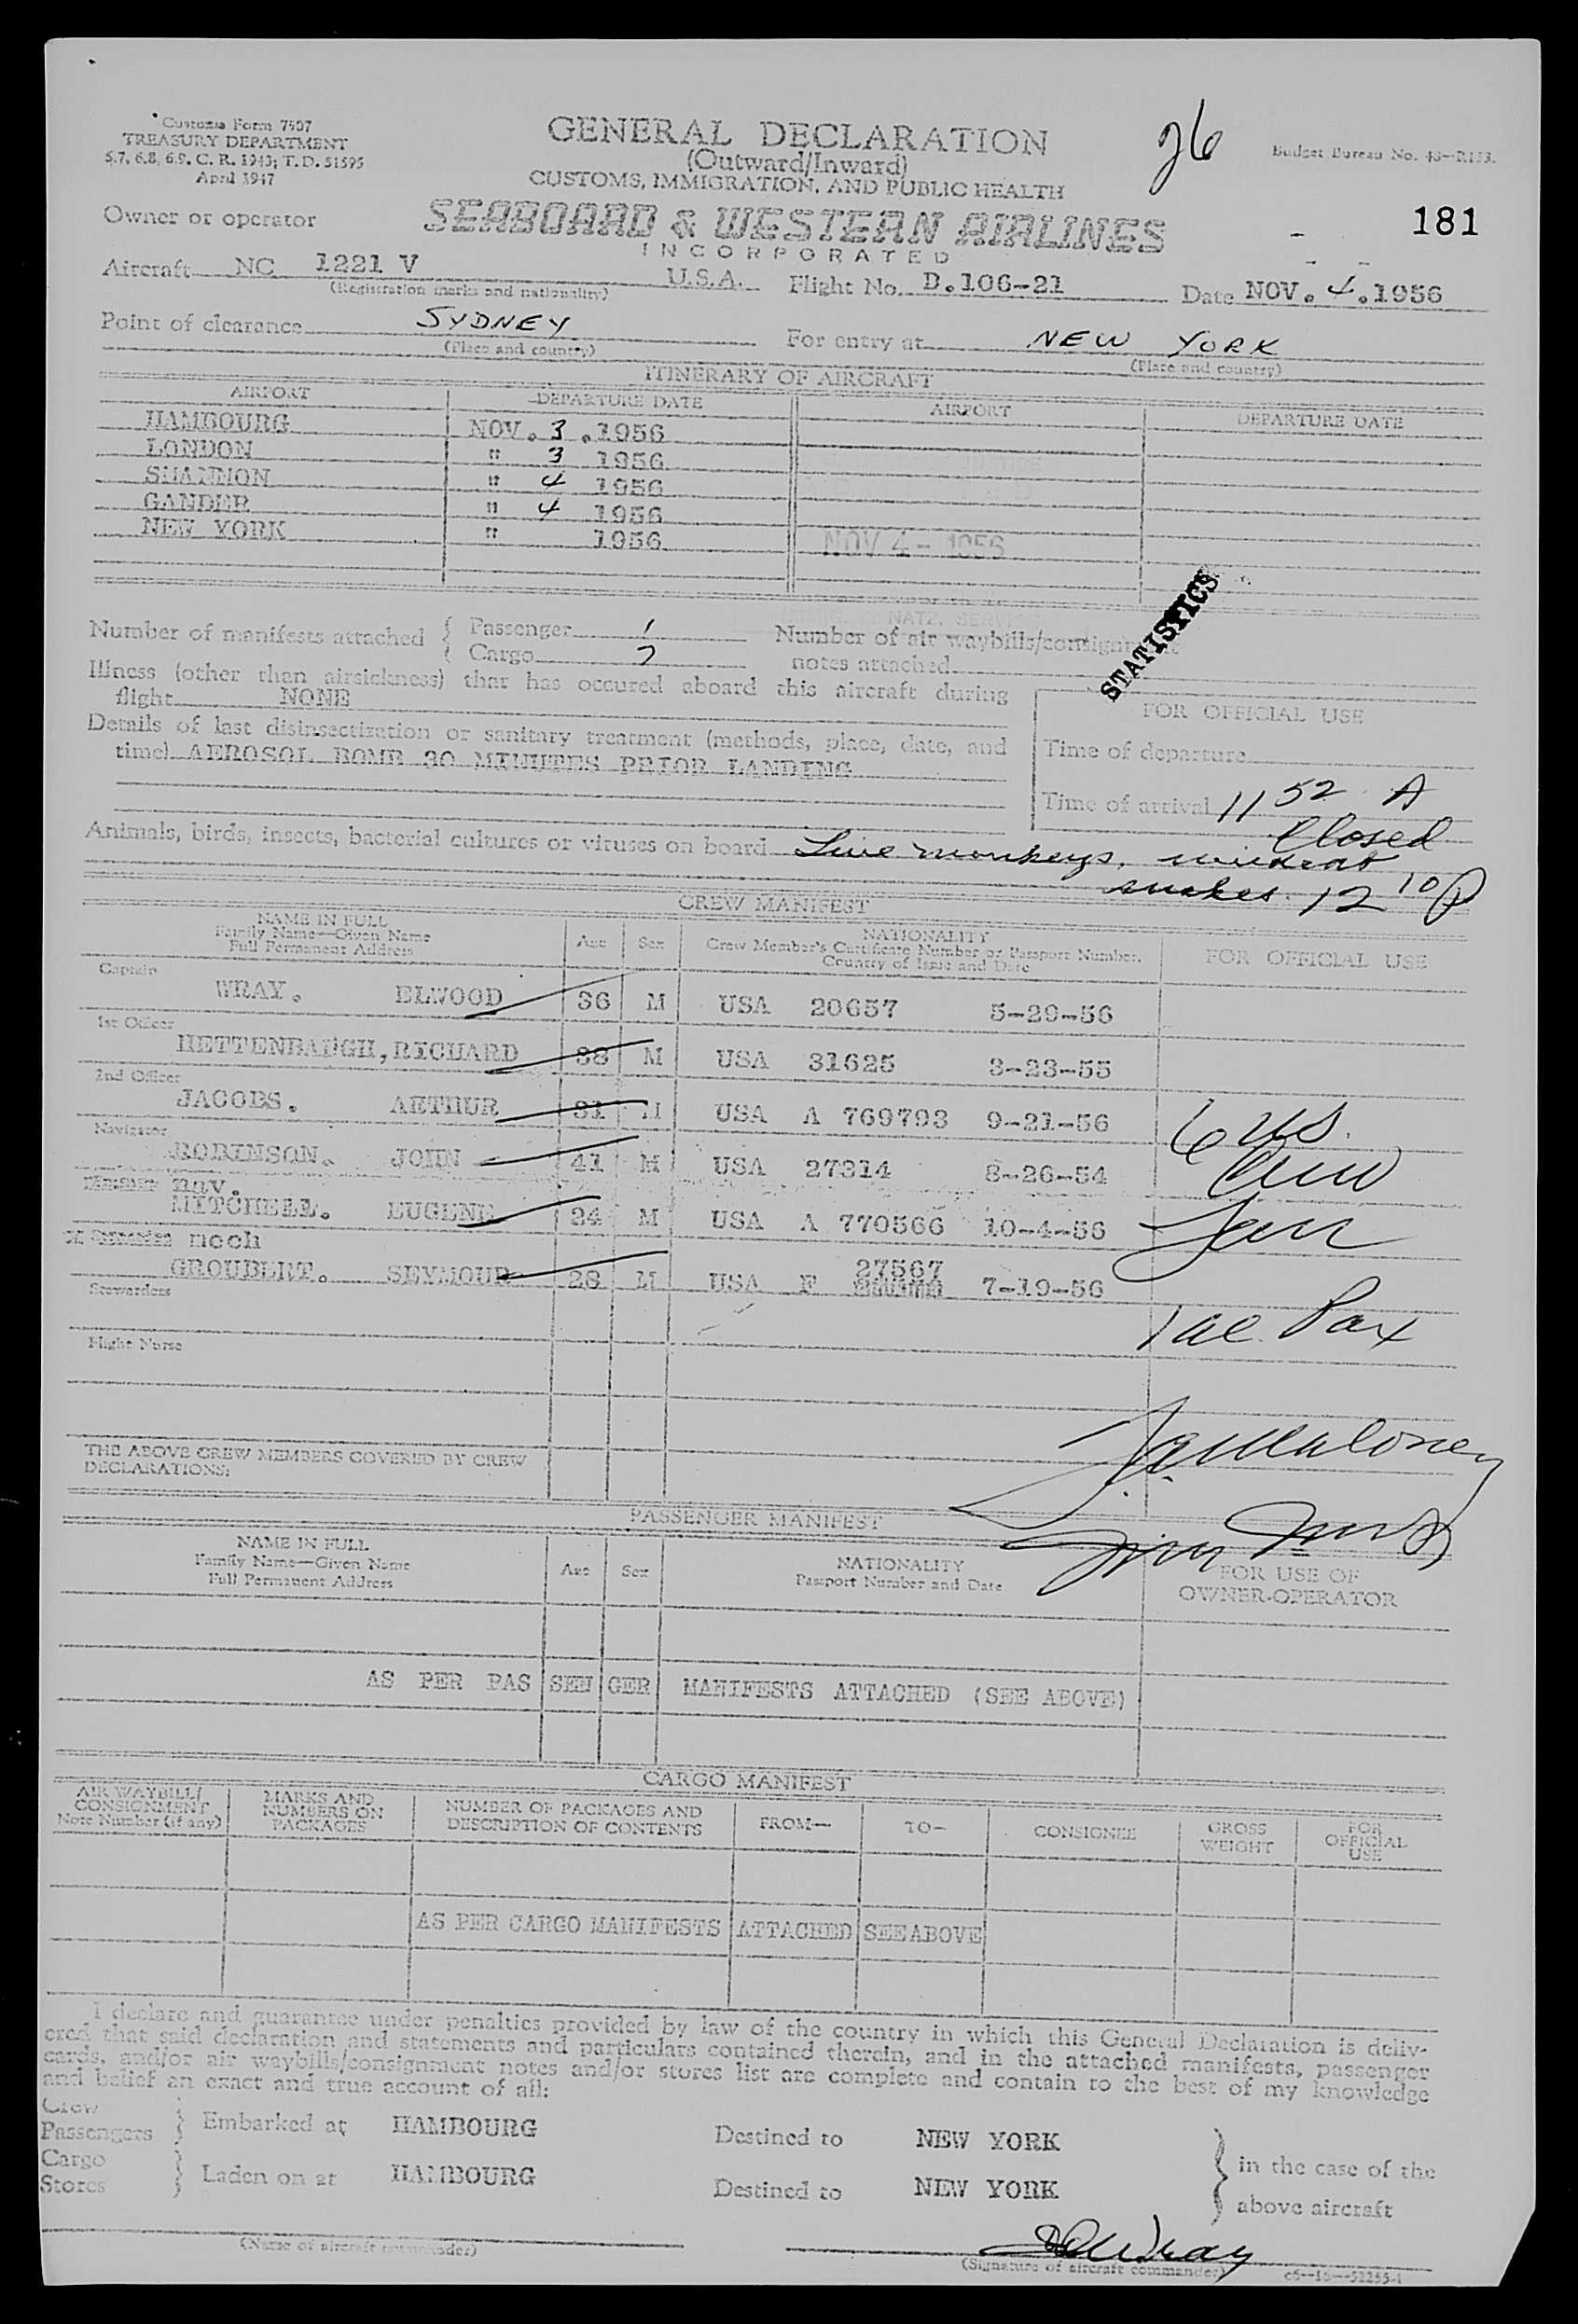 Customs Form 7507
TREASURY DEPARTMENT
5.7, 6.8, 6.9, C. R. 1943; T. D. 51595
April 1947
GENERAL DECLARATION
(Outward/Inward)
CUSTOMS, IMMIGRATION, AND PUBLIC HEALTH
26
Budget Bureau No. 48—R153.
181
Owner or operator SEABOARD & WESTERN AIRLINES
INCORPORATED
Aircraft NC 1221 V U.S.A. Flight No. D.106-21 Date NOV. 4. 1956
(Registration marks and nationality)
Point of clearance SYDNEY For entry at NEW YORK
(Place and country) (Place and country)
ITINERARY OF AIRCRAFT
AIRPORT DEPARTURE DATE AIRPORT DEPARTURE DATE
HAMBOURG NOV. 3 .1956
LONDON " 3 1956
SHANNON " 4 1956
GANDER " 4 1956
NEW YORK " 1956
NOV 4 - 1956
NATZ. SERV
STATISTICS
Number of manifests attached { Passenger 1 Number of air waybills/consignment
Cargo 7 notes attached
Illness (other than airsickness) that has occured aboard this aircraft during
flight NONE
Details of last disinsectization or sanitary treatment (methods, place, date, and
time) AEROSOL BOMB 30 MINUTES PRIOR LANDING
FOR OFFICIAL USE
Time of departure
Time of arrival 11 52 A
Closed
Animals, birds, insects, bacterial cultures or viruses on board Live monkeys,
snakes. 12 10 P
CREW MANIFEST
NAME IN FULL
Family Name—Given Name
Full Permanent Address
Age Sex
NATIONALITY
Crew Member's Certificate Number or Passport Number,
Country of Issue and Date
FOR OFFICIAL USE
Captain
WRAY. ELWOOD 36 M USA 20657 5-29-56
1st Officer
HETTENBAUGH, RICHARD 38 M USA 31625 3-23-55
2nd Officer
JACOBS. ARTHUR 31 M USA A 769793 9-21-56
Navigator
ROBINSON. JOHN 41 M USA 27314 8-26-54
nav.
MITCHELL. EUGENE 24 M USA A 770566 10-4-56
mech
GROUBERT. SEYMOUR 28 M USA F 27567 7-19-56
Stewardess
Flight Nurse
6 US.
Crew
1 ae Pax
THE ABOVE CREW MEMBERS COVERED BY CREW
DECLARATIONS:
PASSENGER MANIFEST
NAME IN FULL
Family Name—Given Name
Full Permanent Address
Age Sex
NATIONALITY
Passport Number and Date
FOR USE OF
OWNER-OPERATOR
AS PER PAS SEN GER MANIFESTS ATTACHED (SEE ABOVE)
CARGO MANIFEST
AIR WAYBILL/
CONSIGNMENT
Note Number (if any)
MARKS AND
NUMBERS ON
PACKAGES
NUMBER OF PACKAGES AND
DESCRIPTION OF CONTENTS
FROM— TO— CONSIGNEE
GROSS
WEIGHT
FOR
OFFICIAL
USE
AS PER CARGO MANIFESTS ATTACHED SEE ABOVE
I declare and guarantee under penalties provided by law of the country in which this General Declaration is deliv-
ered that said declaration and statements and particulars contained therein, and in the attached manifests, passenger
cards, and/or air waybills/consignment notes and/or stores list are complete and contain to the best of my knowledge
and belief an exact and true account of all:
Crew
Passengers } Embarked at HAMBOURG Destined to NEW YORK
Cargo
Stores } Laden on at HAMBOURG Destined to NEW YORK
} in the case of the
above aircraft
(Name of aircraft commander)
(Signature of aircraft commander)
c6—16—52255-1